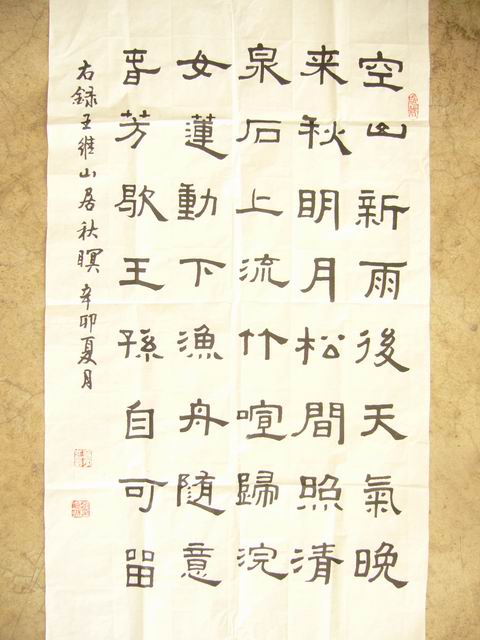 空山新雨後天氣晚
来秋眀月松間照清
泉石上流竹喧歸浣
女蓮動下漁舟随意
春芳歇王孫自可留
右録王維山居秋暝 辛卯夏月